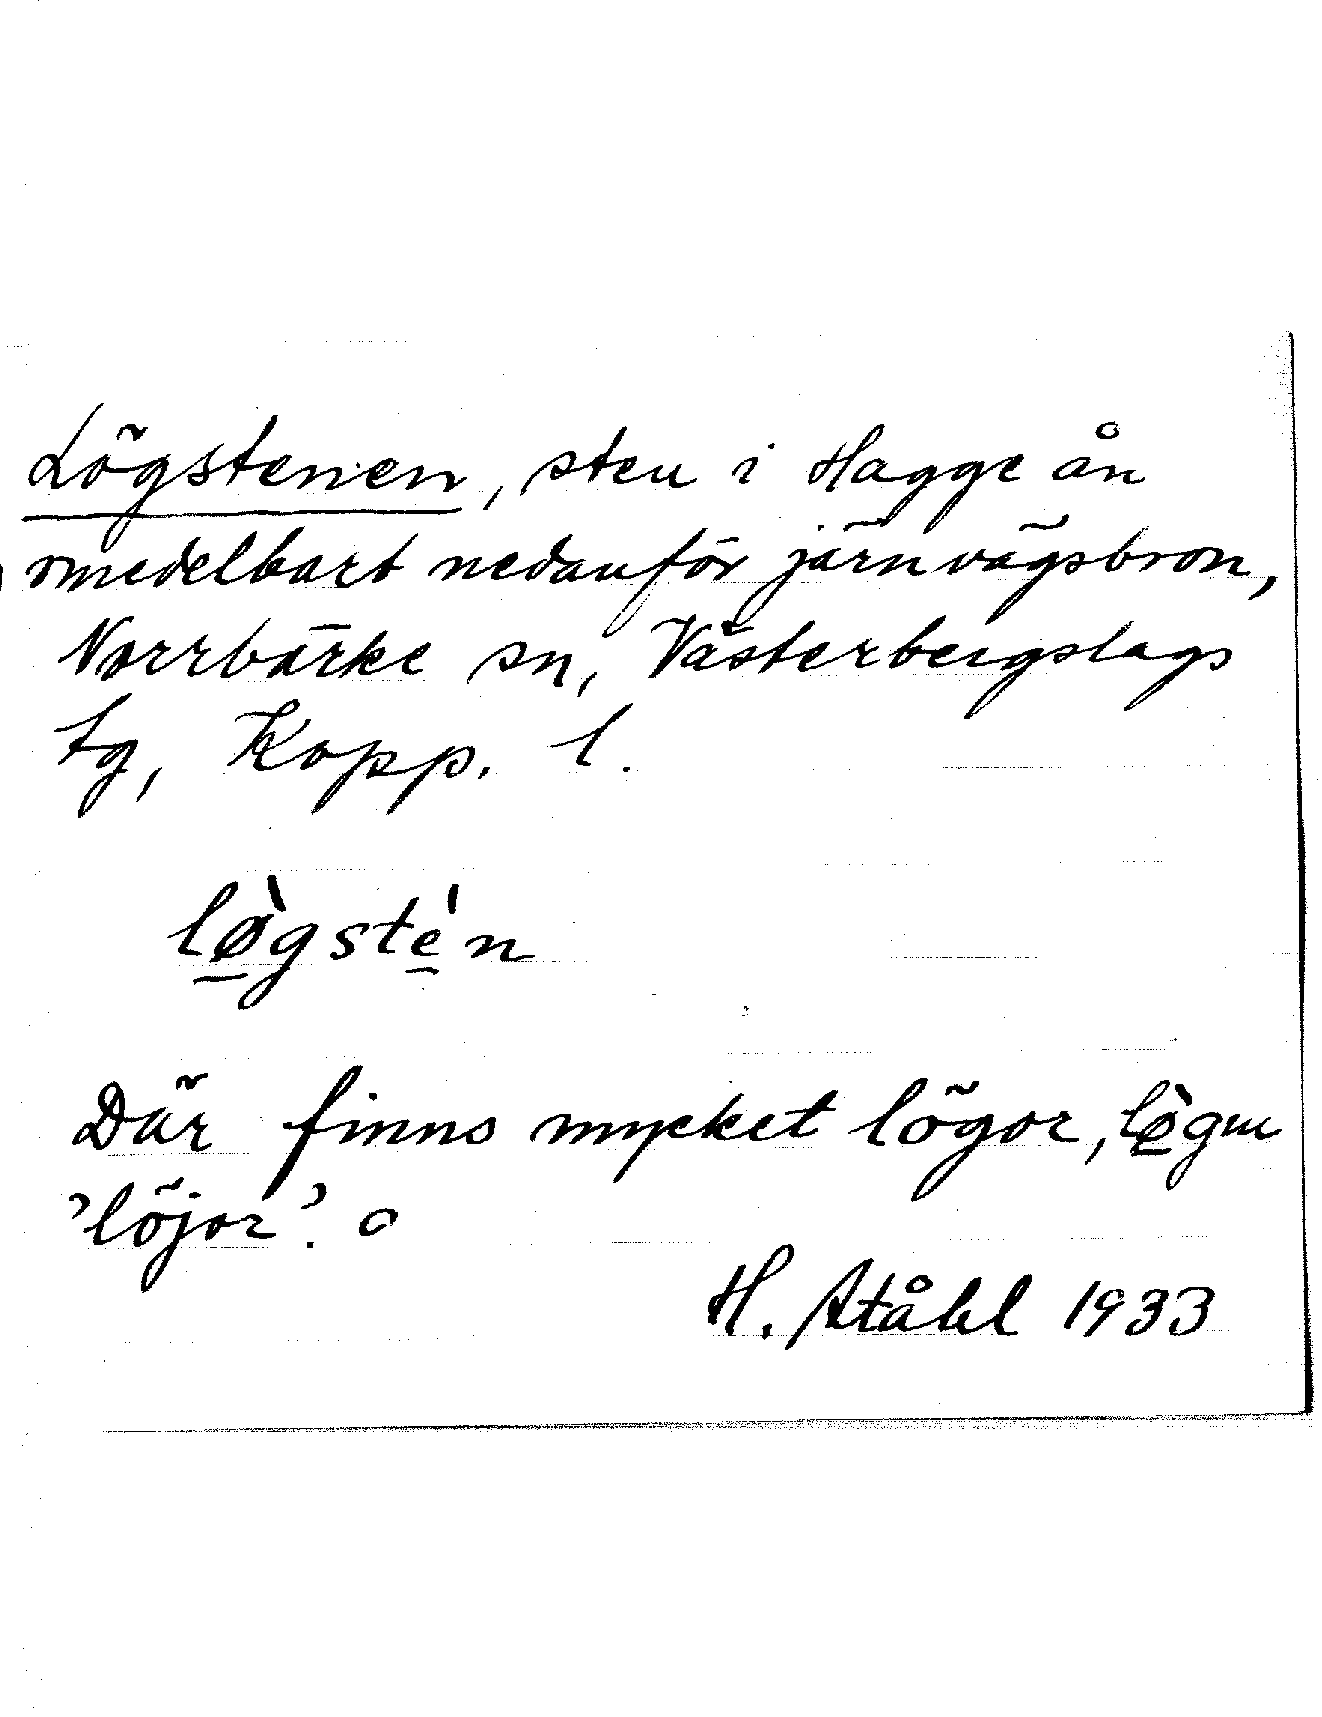 Lögstenen, sten i Hagge ån
omedelbart nedanför järnvägsbron,
Norrbärke sn, Västerbergslags
tg, Kopp. l.
lø̀gstén
Där finns mycket lögor, lø̀gɯ
'löjor'.
H. Ståhl 1933